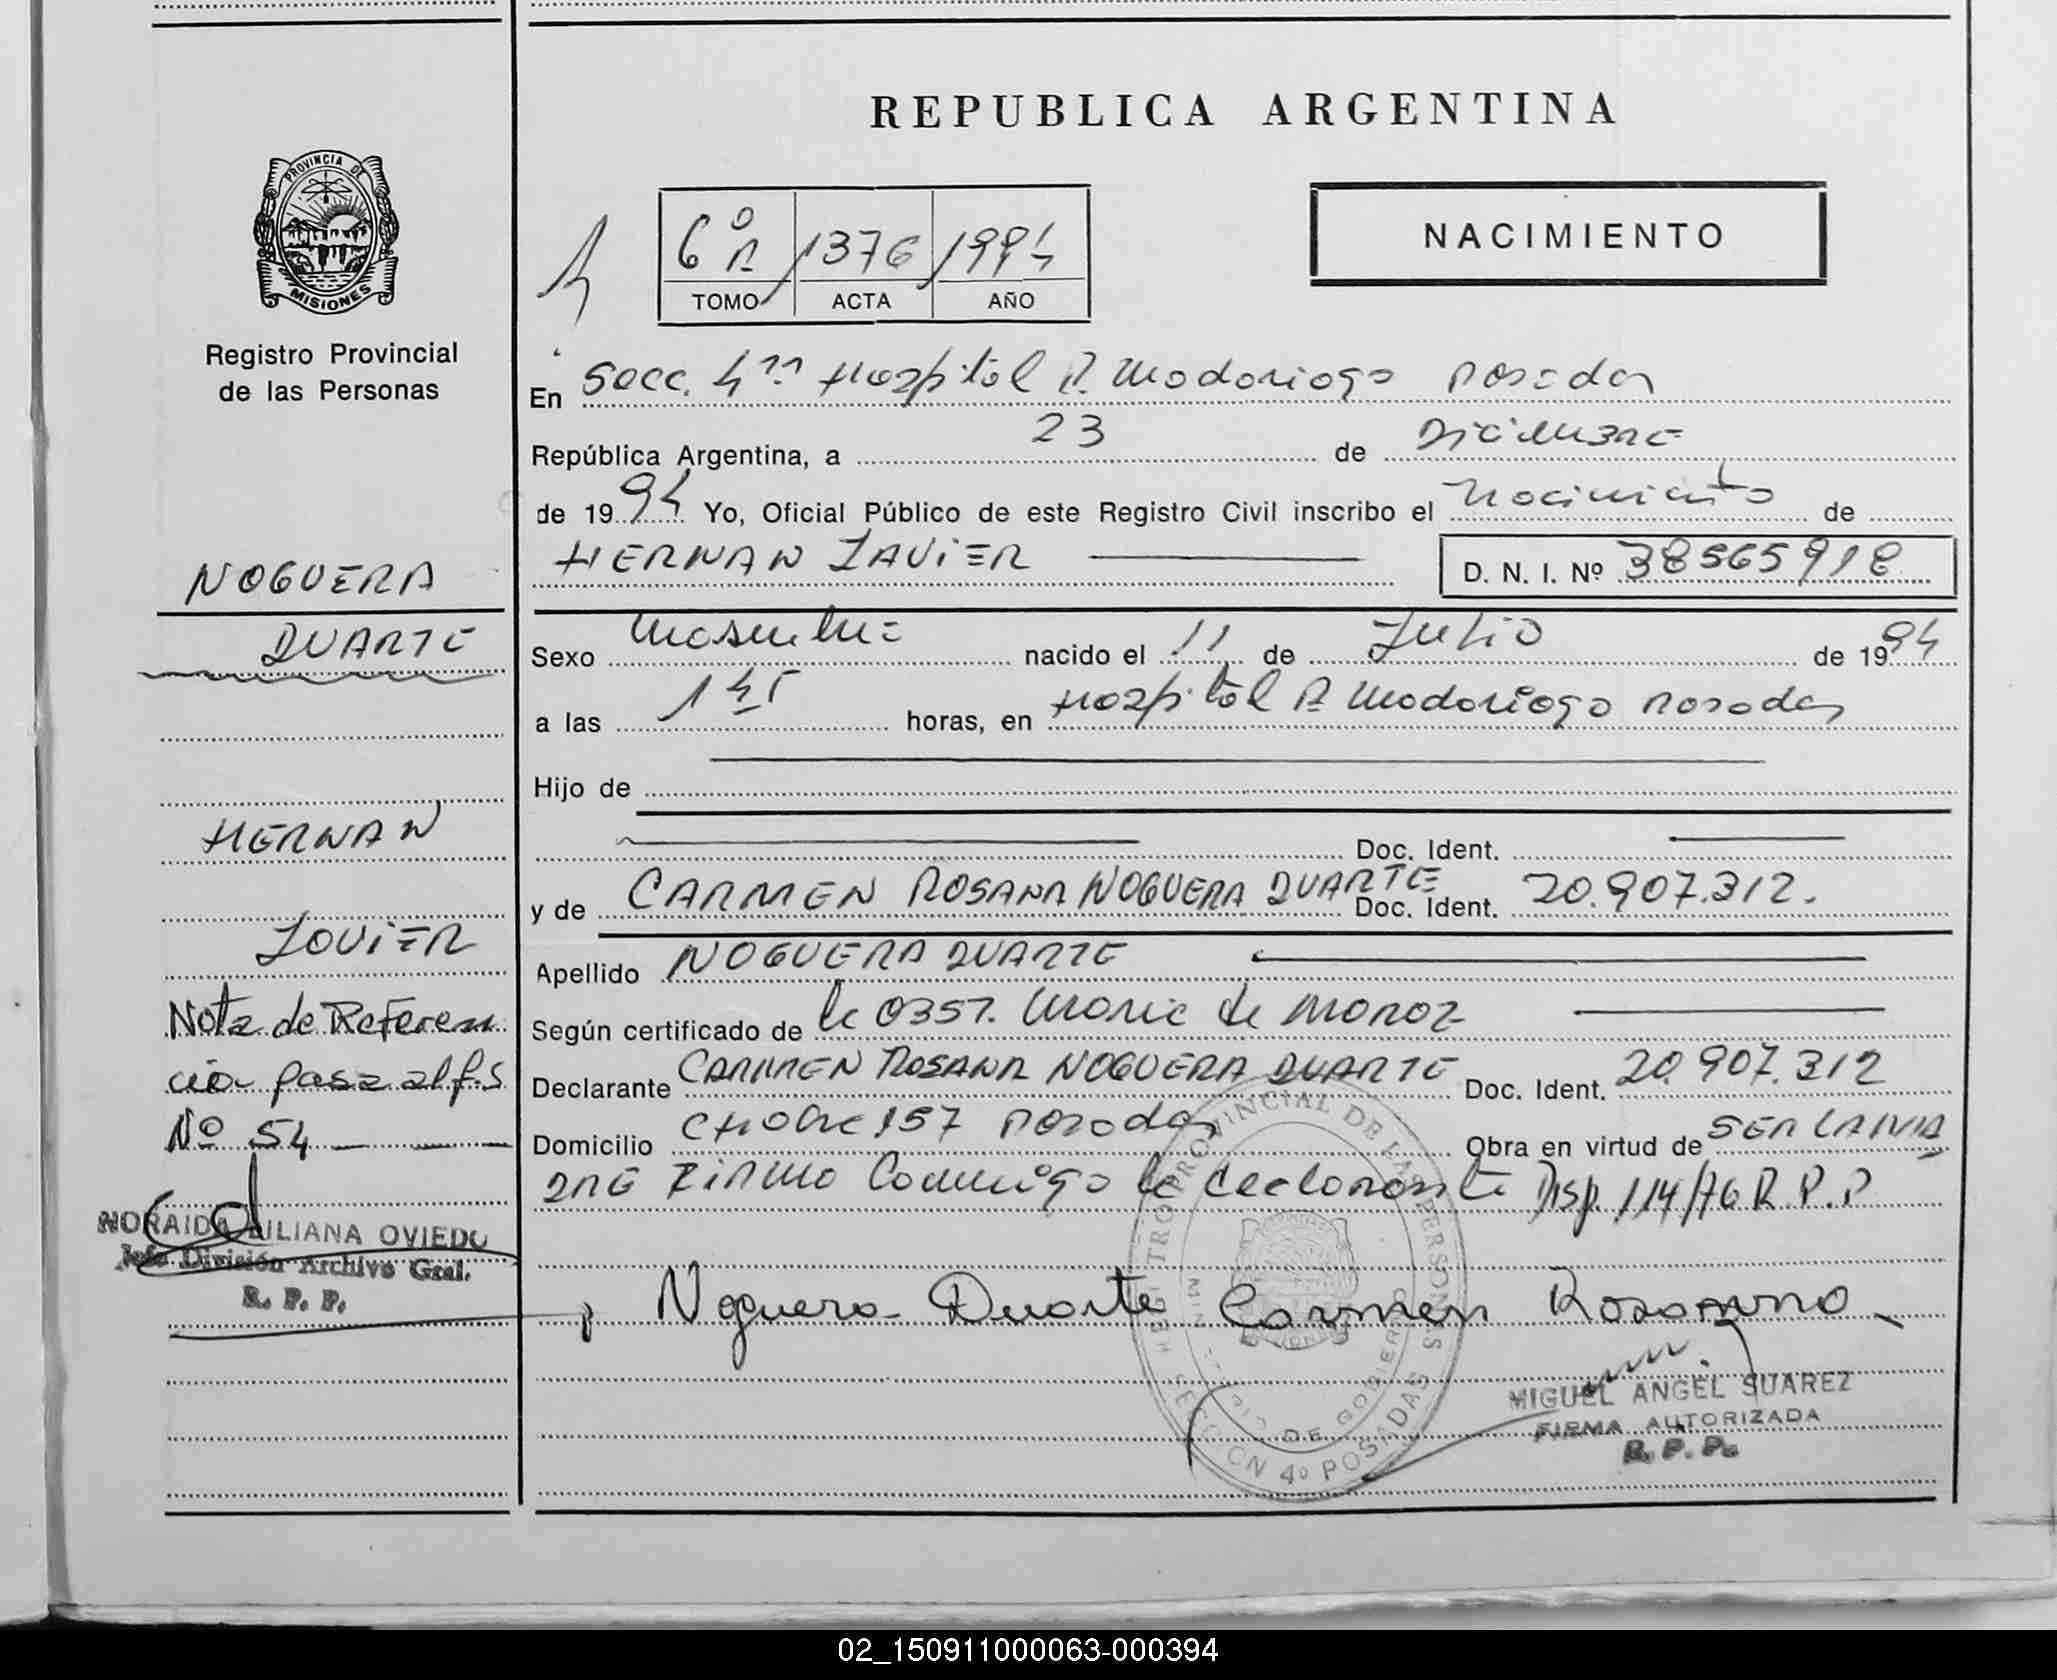 REPUBLICA ARGENTINA
PROVINCIA DE
MISIONES
Registro Provincial
de las Personas
6º A 1376 1994
TOMO ACTA AÑO
NACIMIENTO
En Secc. 4ta Hospital R. Madariaga Posadas
República Argentina, a 23 de Diciembre
de 1994 Yo, Oficial Público de este Registro Civil inscribo el Nacimiento de
HERNAN JAVIER D. N. I. Nº 38565918
NOGUERA
DUARTE
HERNAN
JAVIER
Nota de Referen
cia pasa al f.S
Nº 54
NORAIDA LILIANA OVIEDO
Jefa División Archivo Gral.
R. P. P.
Sexo Masculino nacido el 11 de Julio de 1994
a las 145 horas, en Hospital R Madariaga Posadas
Hijo de
Doc. Ident.
y de CARMEN ROSANA NOGUERA DUARTE Doc. Ident. 20.907.312.
Apellido NOGUERA DUARTE
Según certificado de le 0357. Maria de Moroz
Declarante CARMEN ROSANA NOGUERA DUARTE Doc. Ident. 20.907.312
Domicilio Cholre 157 Posadas Obra en virtud de SER LA MA
DRE Firmo Conmigo la declarante Disp. 114/76 R.P.P
Noguera Duarte Carmen Rosanna
REGISTRO PROVINCIAL DE LAS PERSONAS
SECCION 4º POSADAS
DE GOBIERNO
MIGUEL ANGEL SUAREZ
FIRMA AUTORIZADA
R. P. P.
02_150911000063-000394